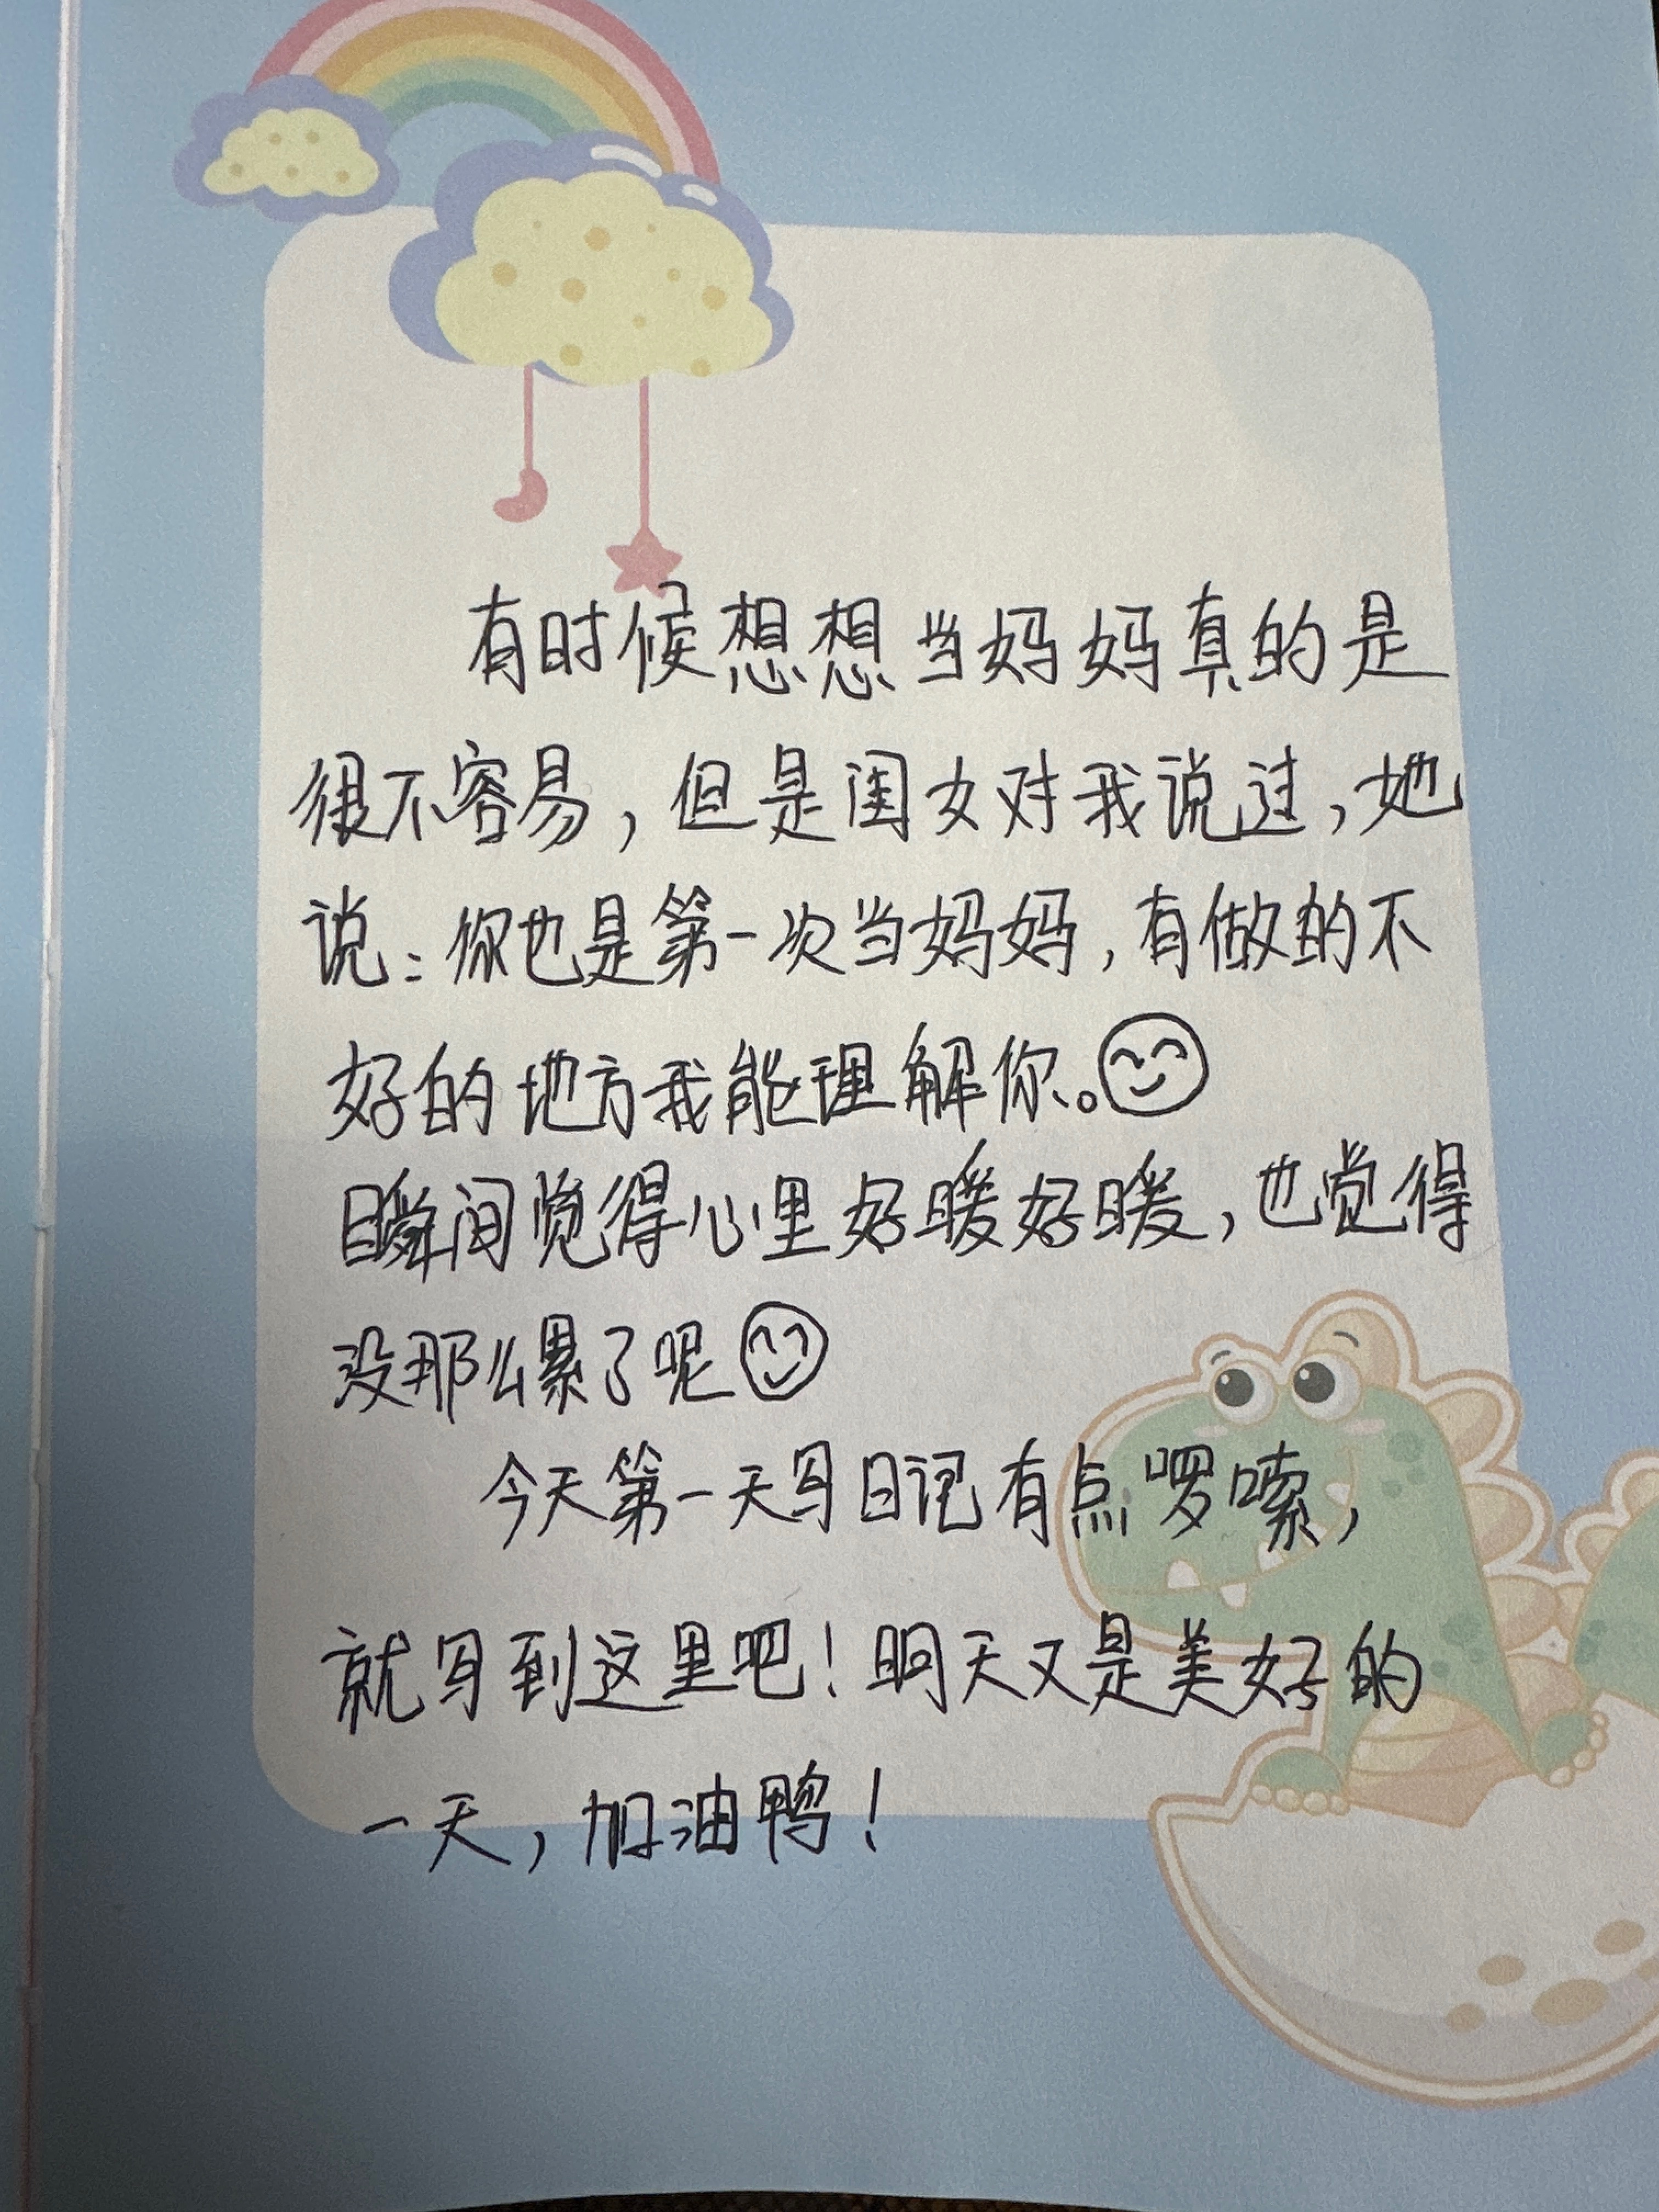 有时候想想当妈妈真的是
很不容易，但是闺女对我说过，她
说：你也是第一次当妈妈，有做的不
好的地方我能理解你。
瞬间觉得心里好暖好暖，也觉得
没那么累了呢
今天第一天写日记有点啰嗦，
就写到这里吧！明天又是美好的
一天，加油鸭！